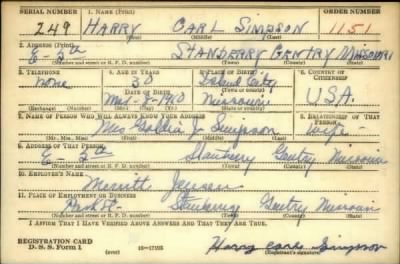 SERIAL NUMBER 1. NAME (Print) ORDER NUMBER
249 HARRY CARL SIMPSON 151
2. ADDRESS (Print)
E-3rd STANBERRY GENTRY MISSOURI
(Number and street or R. F. D. number) (Town) (County) (State)
3. TELEPHONE 4. AGE IN YEARS 5. PLACE OF BIRTH 6. COUNTRY OF CITIZENSHIP
none 30 City
DATE OF BIRTH (Town or county)
8-1910 Missouri U.S.A.
(Exchange) (Number) (Mo.) (Day) (Yr.) (State or country)
7. NAME OF PERSON WHO WILL ALWAYS KNOW YOUR ADDRESS 8. RELATIONSHIP OF THAT PERSON
Mrs Goldia J Simpson Wife-
(Mr., Mrs., Miss) (First) (Middle) (Last)
9. ADDRESS OF THAT PERSON
Stanberry Gentry Missouri
(Number and street or R. F. D. number) (Town) (County) (State)
10. EMPLOYER'S NAME
Merritt Jensen
11. PLACE OF EMPLOYMENT OR BUSINESS
Stanberry Gentry Missouri
(Number and street or R. F. D. number) (Town) (County) (State)
I AFFIRM THAT I HAVE VERIFIED ABOVE ANSWERS AND THAT THEY ARE TRUE.
REGISTRATION CARD
D. S. S. Form 1 (over) Harry Carl Simpson
(Registrant's signature)